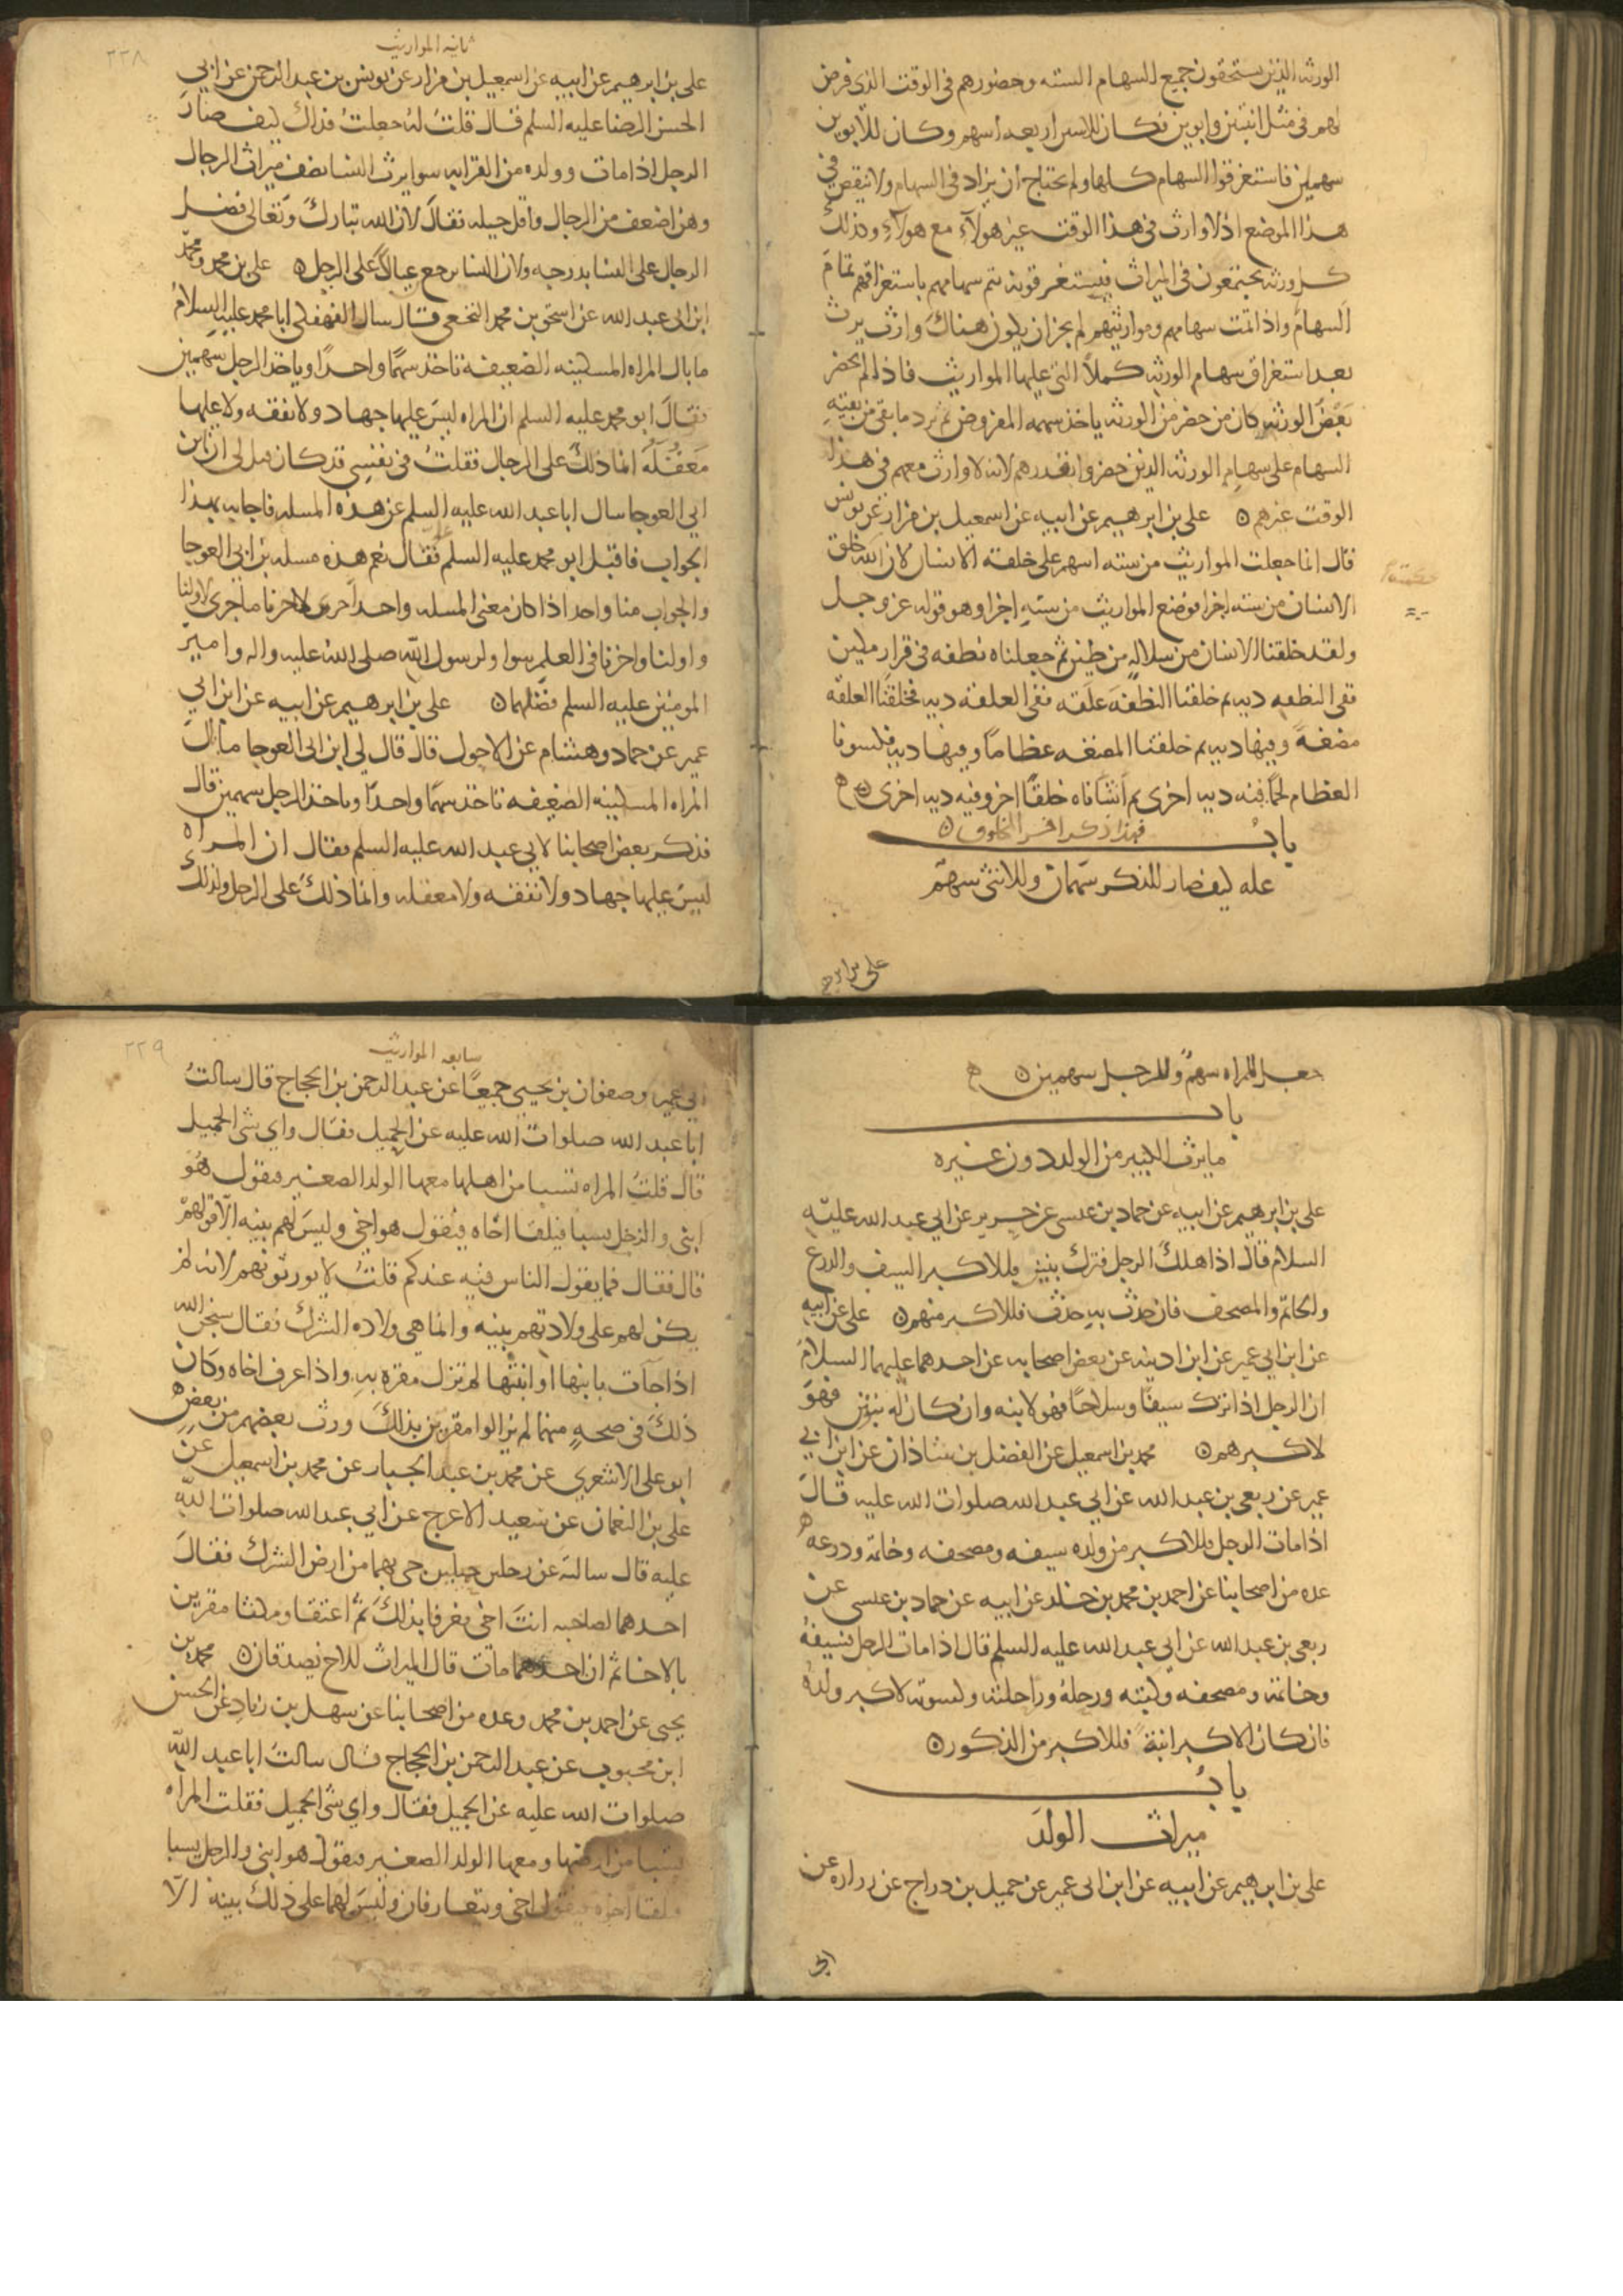 الورثه الذين يستحقون جميع السهام السته وحضورهم في الوقت الذي فرض
لهم في مثل ابنتين وابوين فكان للابنتين اربعه اسهم وكان للابوين
سهمين فاستغرقوا السهام كلها ولم يحتاج ان يزاد في السهام ولا ينقص في
هذا الموضع اذ لا وارث في هذا الوقت غير هولآء مع هولآء وكذلك
كل ورثه يجتمعون في الميراث فيستغرقونه يتم سهامهم باستغراقهم تمام
السهام واذا تمت سهامهم ومواريثهم لم يجز ان يكون هناك وارث يرث
بعد استغراق سهام الورثه كملا التي عليها المواريث فاذا لم يحضر
بعض الورثه كان من حضر من الورثه ياخذ سهمه المفروض ثم يرد ما بقي من بقيه
السهام على سهام الورثه الذين حضروا بقدرهم لانه لا وارث معهم في هذا
الوقت غيرهم ۝ على بن ابرهيم عن ابيه عن اسمعيل بن مرار عن يونس
قال انما جعلت المواريث من سته اسهم على خلقه الانسان لان الله خلق
الانسان من سته اجزا فوضع المواريث من سته اجزا وهو قوله عز وجل
ولقد خلقنا الانسان من سلاله من طين ثم جعلناه نطفه في قرار مكين
ففي النطفه ديه ثم خلقنا النطفه علقه ففي العلقه ديه فخلقنا العلقه
مضغه وفيها ديه ثم خلقنا المضغه عظاما وفيها ديه فكسونا
العظام لحما فيه ديه اخرى ثم انشاناه خلقا اخر وفيه ديه اخرى ۝ ه
فهذا ذكر اخر المخلوق ۝
باب
عله كيف صار للذكر سهمان وللانثى سهم
على بن ابرهيم
ثانيه المواريث
٢٢٨
على بن ابرهيم عن ابيه عن اسمعيل بن مرار عن يونس بن عبد الرحمن عن ابي
الحسن الرضا عليه السلم قال قلت له جعلت فداك كيف صار
الرجل اذا مات وولده من القرابه سوا يرث النسا نصف ميراث الرجال
وهن اضعف من الرجال واقل حيله فقال لان الله تبارك وتعالى فضل
الرجال على النسا بدرجه ولان النسا يرجع عيالا على الرجل ۝ على بن محمد ومحمد
ابن ابي عبد الله عن اسحق بن محمد النخعي قال سال الفهفكي ابا محمد عليه السلام
ما بال المراه المسكينه الضعيفه تاخذ سهما واحدا وياخذ الرجل سهمين
فقال ابو محمد عليه السلم ان المراه ليس عليها جهاد ولا نفقه ولا عليها
معقله انما ذلك على الرجال فقلت في نفسي قد كان قيل لي ان ابن
ابي العوجا سال ابا عبد الله عليه السلم عن هذه المسله فاجابه بهذا
الجواب فاقبل ابو محمد عليه السلم علي فقال نعم هذه مسله بن ابي العوجا
والجواب منا واحد اذا كان معنى المسله واحدا جرى لاخرنا ما جرى لاولنا
واولنا واخرنا في العلم سوا ولرسول الله صلى الله عليه واله وامير
المومنين عليه السلم فضلهما ۝ على بن ابرهيم عن ابيه عن ابن ابي
عمير عن حماد وهشام عن الاحول قال قال لي ابن ابي العوجا ما بال
المراه المسكينه الضعيفه تاخذ سهما واحدا وياخذ الرجل سهمين قال
فذكر بعض اصحابنا لابي عبد الله عليه السلم فقال ان المراه
ليس عليها جهاد ولا نفقه ولا معقله وانما ذلك على الرجل ولذلك
جعل للمراه سهم وللرجل سهمين ۝ ه
باب
ما يرث الكبير من الولد دون غيره
على بن ابرهيم عن ابيه عن حماد بن عيسى عن حريز عن ابي عبد الله عليه
السلام قال اذا هلك الرجل فترك بنين فللاكبر السيف والدرع
والخاتم والمصحف فان حدث به حدث فللاكبر منهم ۝ على عن ابيه
عن ابن ابي عمير عن ابن اذينه عن بعض اصحابه عن احدهما عليهما السلام
ان الرجل اذا ترك سيفا وسلاحا فهو لابنه وان كان له بنون فهو
لاكبرهم ۝ محمد بن اسمعيل عن الفضل بن شاذان عن ابن ابي
عمير عن ربعي بن عبد الله عن ابي عبد الله صلوات الله عليه قال
اذا مات الرجل فللاكبر من ولده سيفه ومصحفه وخاتمه ودرعه ه
عده من اصحابنا عن احمد بن محمد بن خلد عن ابيه عن حماد بن عيسى عن
ربعي بن عبد الله عن ابي عبد الله عليه السلم قال اذا مات الرجل فسيفه
وخاتمه ومصحفه وكتبه ورحله وراحلته وكسوته لاكبر ولده
فان كان الاكبر ابنة فللاكبر من الذكور ۝
باب
ميراث الولد
على بن ابرهيم عن ابيه عن ابن ابي عمير عن جميل بن دراج عن زراره عن
ابي
سابعه المواريث
٢٢٩
ابي عمير وصفوان بن يحيى جميعا عن عبد الرحمن بن الحجاج قال سالت
ابا عبد الله صلوات الله عليه عن الحميل فقال واي شي الحميل
قال قلت المراه تسبا من اهلها معها الولد الصغير فيقول هو
ابني والرجل يسبا فيلقا اخاه فيقول هو اخي وليس لهم بينه الا قولهم
قال فقال فما يقول الناس فيه عندكم قلت لا يورثونهم لانه لم
يكن لهم على ولادتهم بينه وانما هي ولاده الشرك فقال سبحن الله
اذا جات بابنها او ابنتها لم تزل مقره به واذا عرف اخاه وكان
ذلك في صحه منهما لم يزالوا مقرين بذلك ورث بعضهم من بعض ه
ابو على الاشعري عن محمد بن عبد الجبار عن محمد بن اسمعيل عن
على بن النعمان عن سعيد الاعرج عن ابي عبد الله صلوات الله
عليه قال سالته عن رجلين حميلين جي بهما من ارض الشرك فقال
احدهما لصاحبه انت اخي فعرفا بذلك ثم اعتقا ومكثا مقرين
بالاخا ثم ان احدهما مات قال الميراث للاخ يصدقان ۝ محمد بن
يحيى عن احمد بن محمد وعده من اصحابنا عن سهل بن زياد عن الحسن
ابن محبوب عن عبد الرحمن بن الحجاج قال سالت ابا عبد الله
صلوات الله عليه عن الحميل فقال واي شي الحميل فقلت المراه
تسبا من ارضها ومعها الولد الصغير فيقول هو ابني والرجل يسبا
فيلقا اخوه فيقول اخي ويتعارفان وليس لهما على ذلك بينه الا